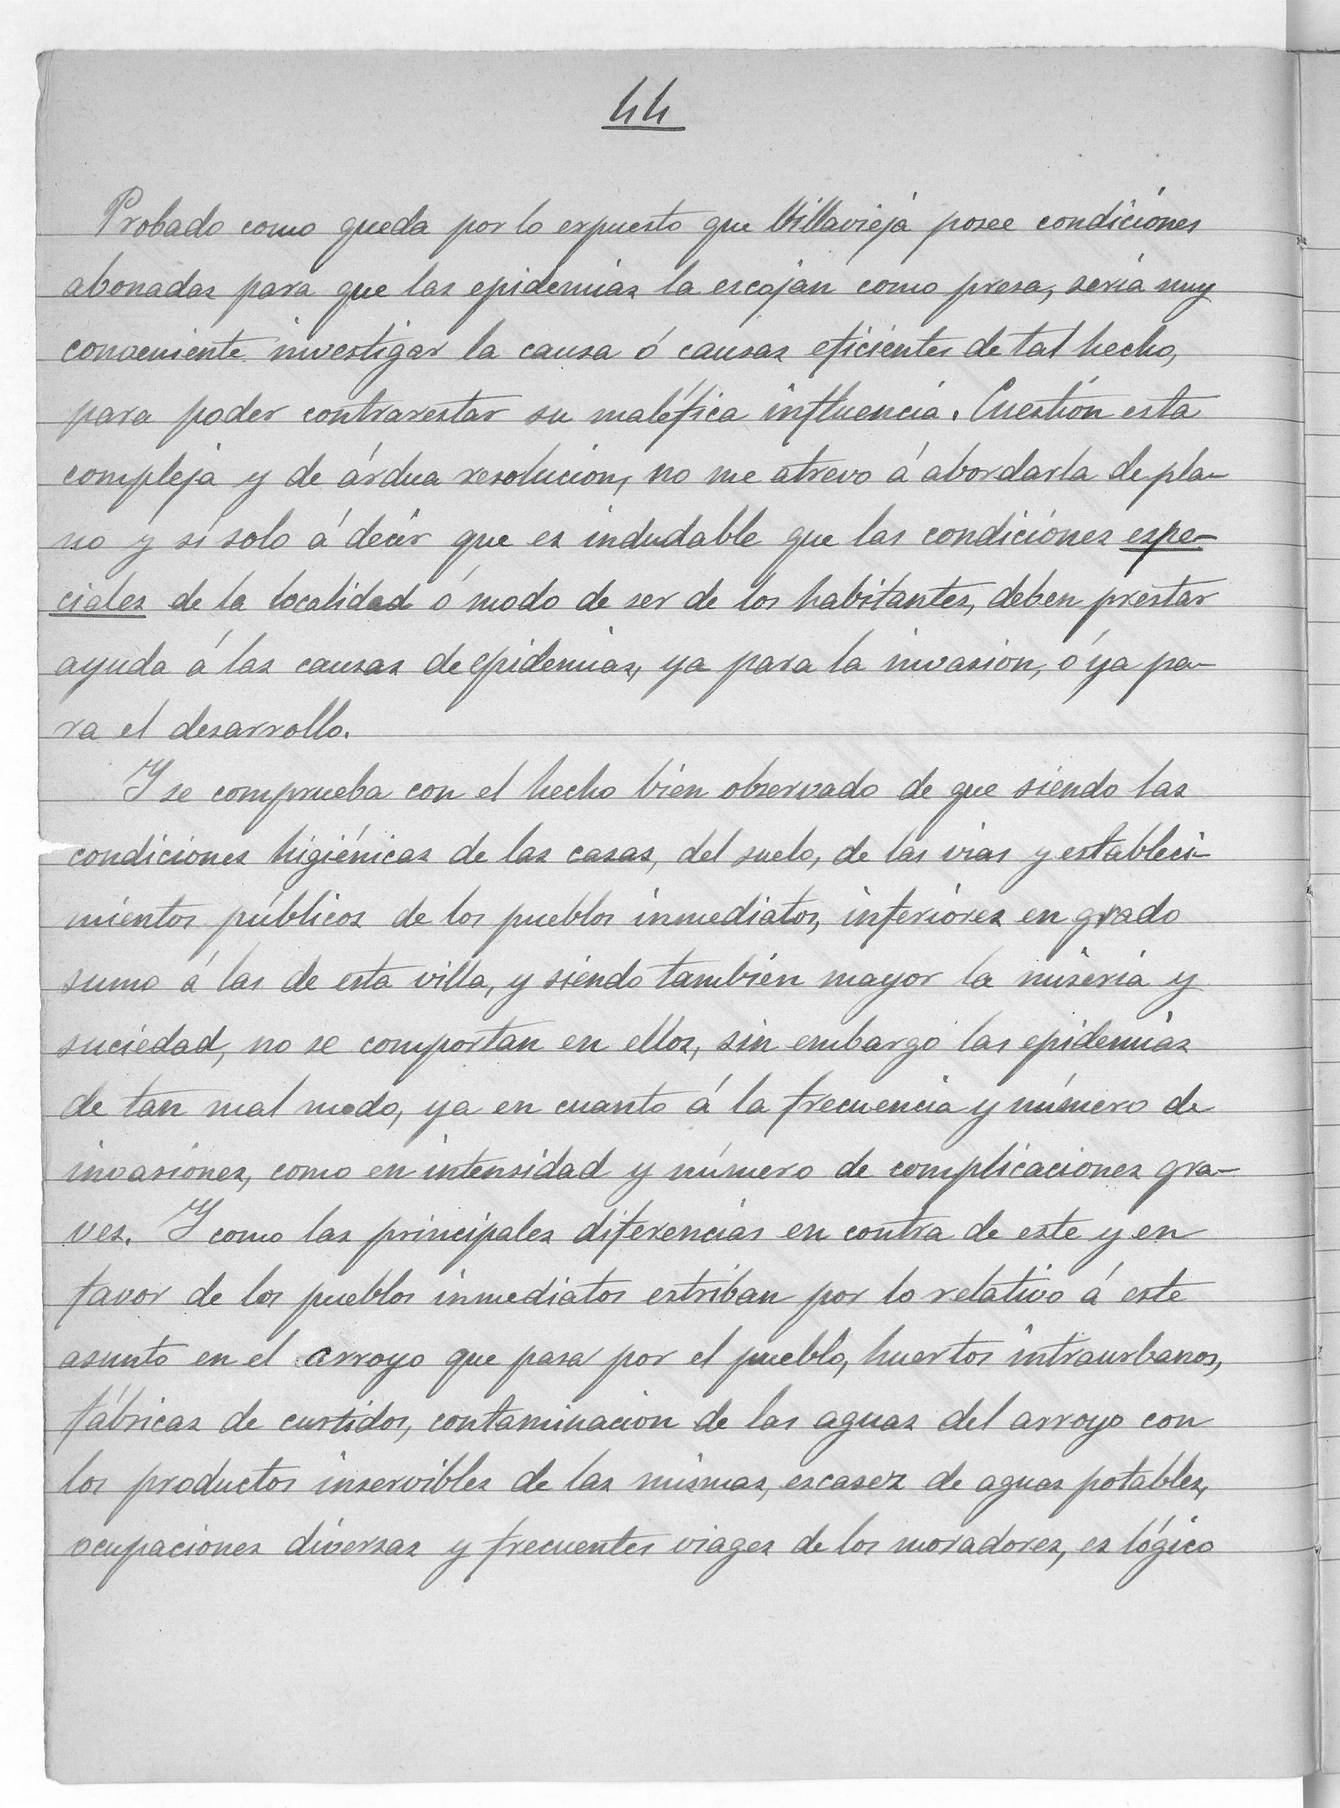 44
Probado como queda por lo expuesto que Villavieja posee condiciones
abonadas para que las epidemias la escojan como presa, sería muy
conveniente investigar la causa ó causas eficientes de tal hecho,
para poder contrarestar su maléfica influencia. Cuestión esta
compleja y de árdua resolución, no me atrevo á abordarla de pla-
no y sí solo á decir que es indudable que las condiciones espe-
ciales de la localidad ó modo de ser de los habitantes, deben prestar
ayuda á las causas de epidemias, ya para la invasión, ó ya pa-
ra el desarrollo.
Y se comprueba con el hecho bien observado de que siendo las
condiciones higiénicas de las casas, del suelo, de las vias y estableci-
mientos públicos de los pueblos inmediatos, inferiores en grado
sumo á las de esta villa, y siendo también mayor la miseria y
suciedad, no se comportan en ellos, sin embargo las epidemias
de tan mal modo, ya en cuanto á la frecuencia y número de
invasiones, como en intensidad y número de complicaciones gra-
ves. Y como las principales diferencias en contra de este y en
favor de los pueblos inmediatos estriban por lo relativo á este
asunto en el arroyo que pasa por el pueblo, huertos intraurbanos,
fábricas de curtidos, contaminación de las aguas del arroyo con
los productos inservibles de las mismas, escasez de aguas potables,
ocupaciones diversas y frecuentes viages de los moradores, es lógico